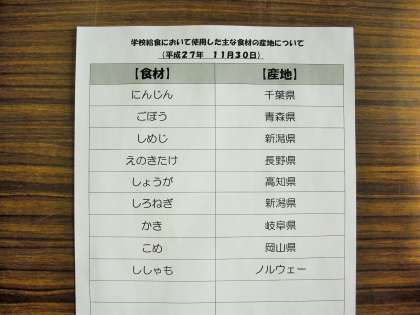 学校給食において使用した主な食材の産地について
（平成２７年　１１月３０日）
【食材】　【産地】
にんじん　千葉県
ごぼう　青森県
しめじ　新潟県
えのきたけ　長野県
しょうが　高知県
しろねぎ　新潟県
かき　岐阜県
こめ　岡山県
ししゃも　ノルウェー